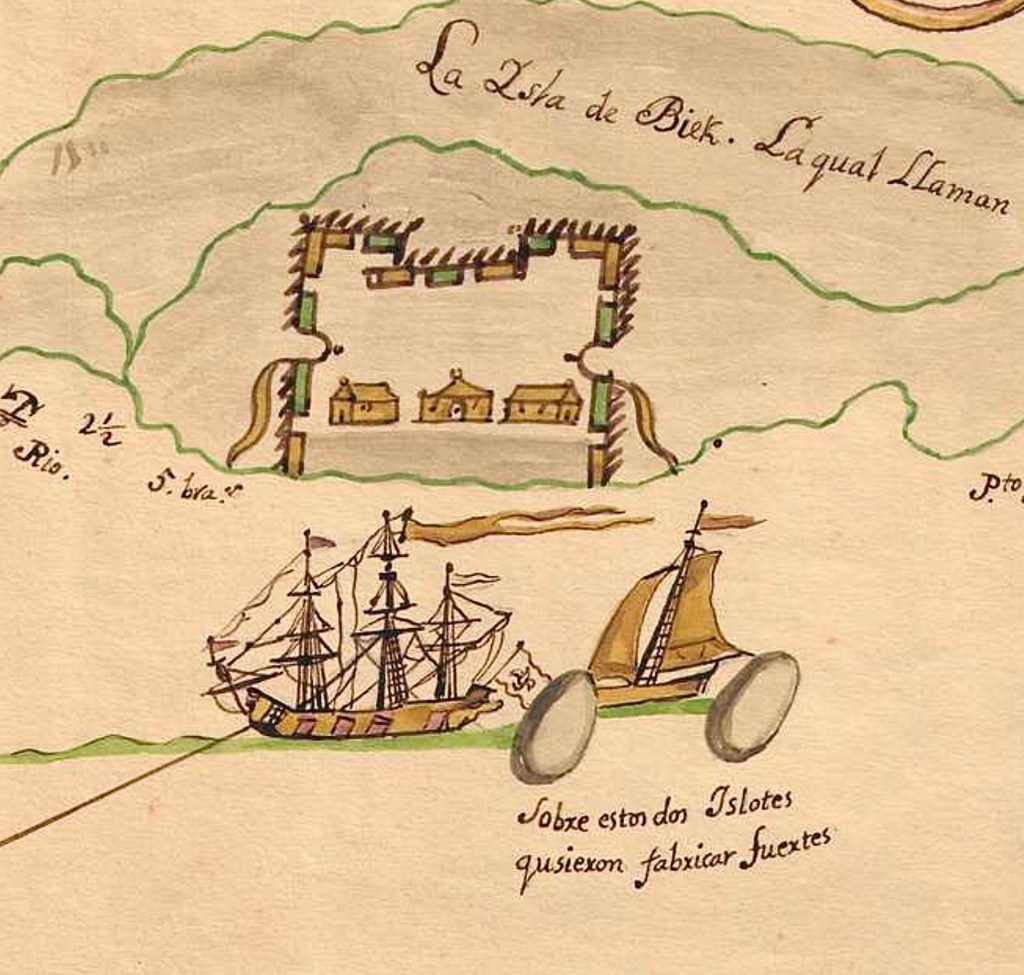 La Ysla de Biek. La qual Llaman
2 1/2
Rio.
5. bra.s
Pto
Sobre estos dos Islotes
qusieron fabricar fuertes